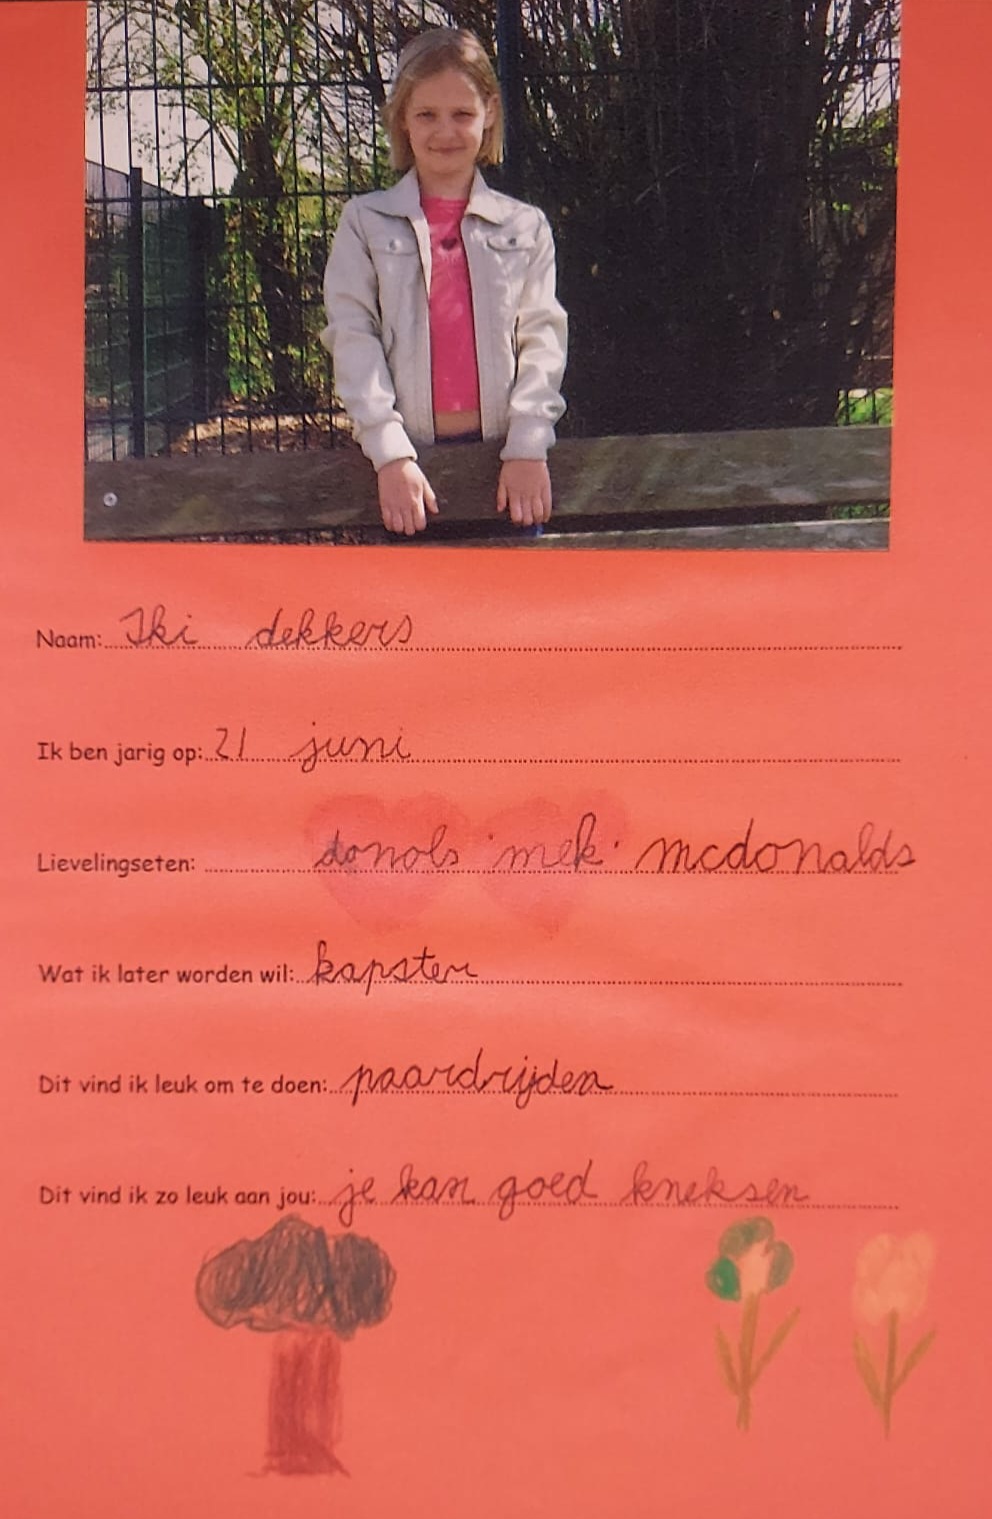 Naam: Iki dekkers
Ik ben jarig op: 21 juni
Lievelingseten: donols mek mcdonalds
Wat ik later worden wil: kapster
Dit vind ik leuk om te doen: paardrijden
Dit vind ik zo leuk aan jou: je kan goed kneksen